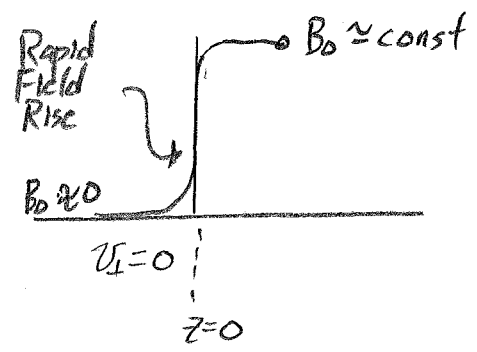 Rapid
Field
Rise
B₀ ≃ const
B₀ ≈ 0
v⊥ = 0
z=0